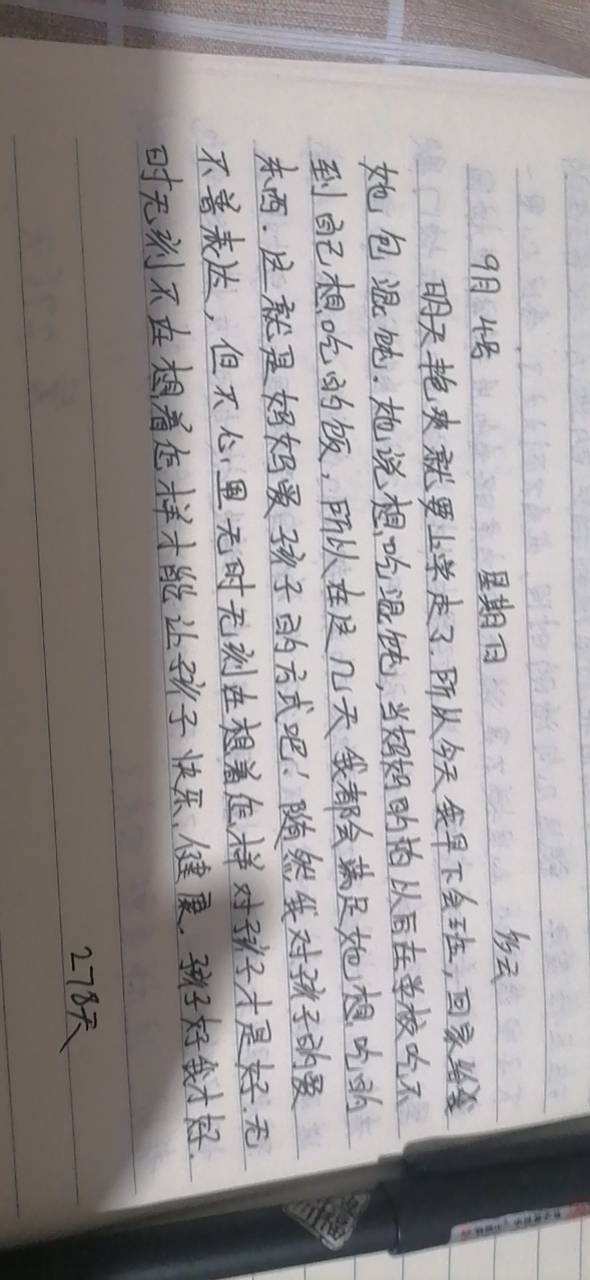 9月4号 星期日 多云
明天艳爽就要上学走了.所以今天我早下会班,回家给我
她包混饨.她说想吃混饨,当妈妈的怕以后在学校吃不
到自己想吃的饭,所以在这几天我都会满足她想吃的
东西.这就是妈妈爱孩子的方式吧!随然我对孩子的爱
不善表达,但不心里无时无刻在想着怎样对孩子才是好.无
时无刻不在想着怎样才能让孩子快乐,健康.孩子好我才好.
278天